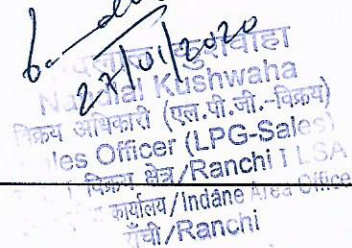 27/01/2020
कुशवाहा
Kushwaha
विक्रय अधिकारी (एल.पी.जी.-विक्रय)
les Officer (LPG-Sales)
विक्रय क्षेत्र/Ranchi I LSA
कार्यालय/Indane Area Office
राँची/Ranchi